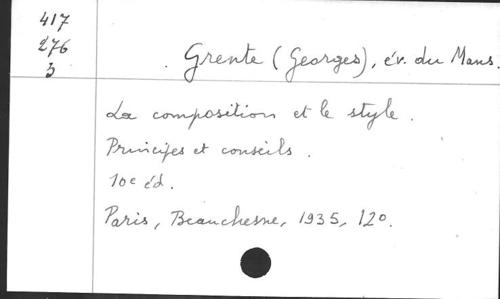 417
276
3
Grente (Georges), év. du Mans.
La composition et le style.
Principes et conseils.
10e éd.
Paris, Beauchesne, 1935, 12o.